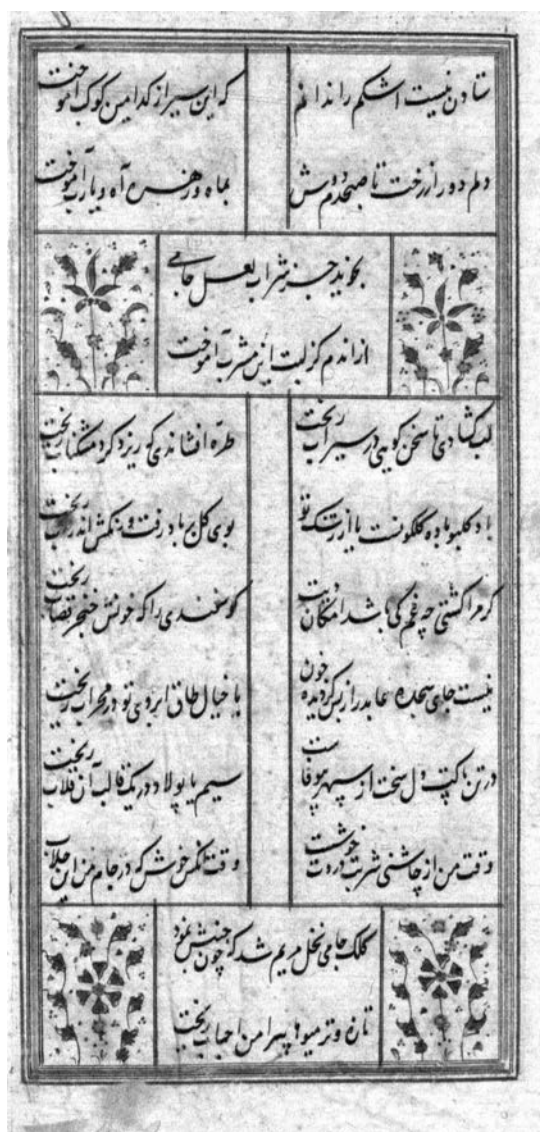 ستادن نیست اشکم را ندانم
که این سیر از کدامین کوکب آموخت
دلم دور از رخت تا صبحدم دوش
بماه و زهره آه و یارب آموخت
نجوید جز شراب لعل جامی
ازاندم کز لبت این مشرب آموخت
لب گشادی تا سخن گویی در سیراب ریخت
طره افشاندی که ریزد گرد مشکناب ریخت
باد گلبو باده گلگونست یا از رشک تو
بوی گل بر باد رفت و رنگش اندر آب ریخت
گر مرا کشتی چه غم کی باشد امکان دیت
گوسفندی را که خونش خنجر قصاب ریخت
نیست جای سجده عابد را ز بس کز دیده خون
با خیال طاق ابروی تو در محراب ریخت
در تن پاکت دل سخت از سپهر بیوفاست
سیم با پولاد در یک قالب آن قلاب ریخت
وقت من از چاشنی شربت دردت خوشست
وقت آنکس خوش که در جام من این جلاب ریخت
کلک جامی نخل مریم شد که چون جنبش نمود
تازه و تر میوها پیرامن احباب ریخت